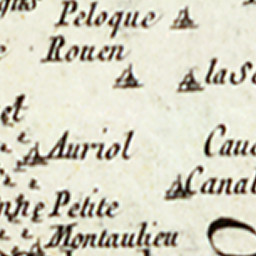 Peloque
Rouen
la Se
et
Auriol
Cau
Canal
Petite
Montaulieu